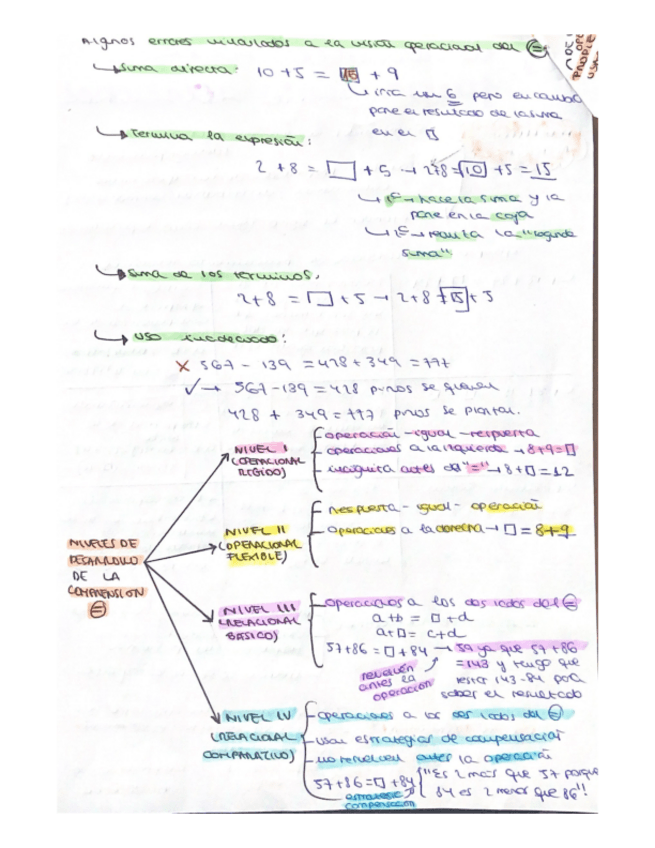 Algunos errores vinculados a la visión operacional del =
Suma directa: 10 + 5 = 15 + 9
iría un 6 pero en cambio
pone el resultado de la suma
en el □
Termina la expresión:
2 + 8 = □ + 5 → 2+8 = 10 + 5 = 15
1º → hace la suma y la
pone en la caja
→ realiza la "segunda
suma"
Suma de los términos.
2+8 = □ + 5 → 2+8 = 15 + 5
Uso inadecuado:
✗ 567 - 139 = 428 + 349 = 777
✓ → 567 - 139 = 428 pinos se quedan
428 + 349 = 777 pinos se plantan.
NIVELES DE
DESARROLLO
DE LA
COMPRENSION
=
NIVEL I
(OPERACIONAL
RIGIDO)
operación - igual - respuesta
operaciones a la izquierda → 8+9=□
incógnita antes del "=" → 8+□=12
NIVEL II
(OPERACIONAL
FLEXIBLE)
Respuesta - igual - operación
operaciones a la derecha → □ = 8+9
NIVEL III
(RELACIONAL
BASICO)
operaciones a los dos lados del =
a+b = □+d
a+□ = c+d
57+86 = □+84 → 59 ya que 57+86
=143 y tengo que
restar 143-84 para
saber el resultado
resuelven
antes la
operación
NIVEL IV
(RELACIONAL
COMPARATIVO)
operaciones a los dos lados del =
usan estrategias de compensación
no resuelven antes la operación
57+86=□+84 "Es 2 más que 57 porque
84 es 2 menor que 86"!
estrategia
compensación